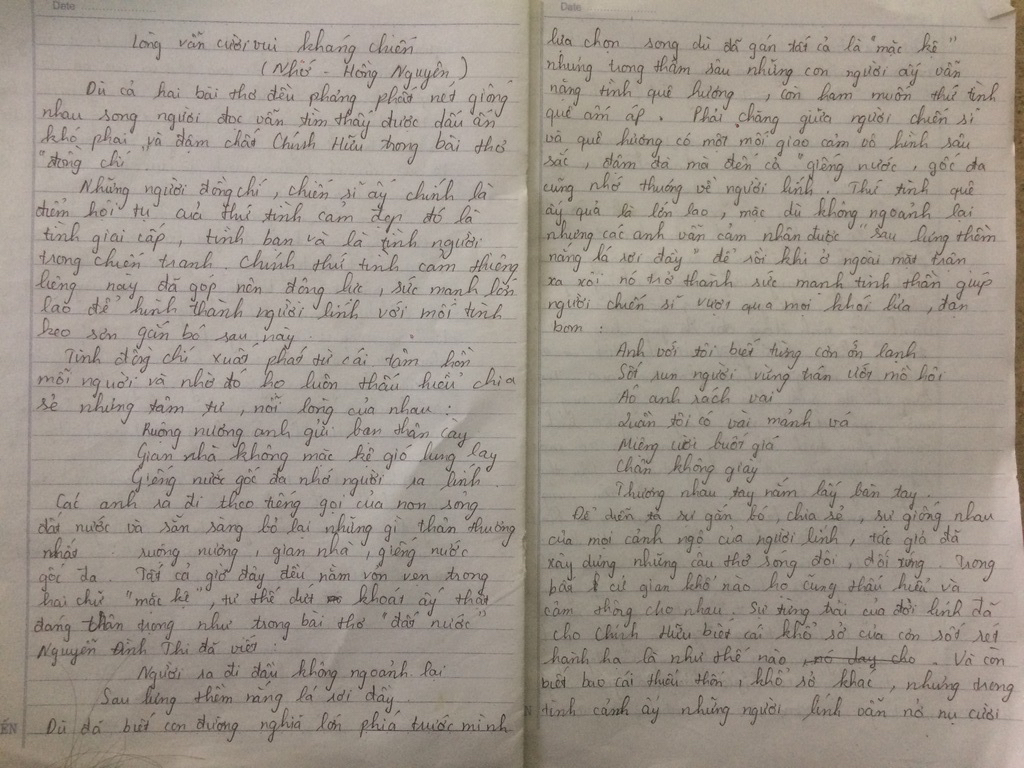 Date
Lòng vẫn cười vui kháng chiến
(Nhớ - Hồng Nguyên)
Dù cả hai bài thơ đều phảng phất nét giống
nhau song người đọc vẫn tìm thấy được dấu ấn
khó phai và đậm chất Chính Hữu trong bài thơ
"đồng chí"
Những người đồng chí, chiến sĩ ấy chính là
điểm hội tụ của thứ tình cảm đẹp đó là
tình giai cấp, tình bạn và là tình người
trong chiến tranh. Chính thứ tình cảm thiêng
liêng này đã góp nên động lực, sức mạnh lớn
lao để hình thành người lính với mối tình
keo sơn gắn bó sau này.
Tình đồng chí xuất phát từ cái tâm hồn
mỗi người và nhờ đó họ luôn thấu hiểu chia
sẻ những tâm tư, nỗi lòng của nhau:
Ruộng nương anh gửi bạn thân cày
Gian nhà không mặc kệ gió lung lay
Giếng nước gốc đa nhớ người ra lính.
Các anh ra đi theo tiếng gọi của non sông
đất nước và sẵn sàng bỏ lại những gì thân thương
nhất: ruộng nương, gian nhà, giếng nước
gốc đa. Tất cả giờ đây đều nằm vỏn vẹn trong
hai chữ "mặc kệ", tư thế dứt khoát ấy thật
đáng trân trọng như trong bài thơ "đất nước"
Nguyễn Đình Thi đã viết:
Người ra đi đầu không ngoảnh lại
Sau lưng thềm nắng lá rơi đầy.
Dù đã biết con đường nghĩa lớn phía trước mình
Date
lựa chọn song dù đã gán tất cả là "mặc kệ"
nhưng trong thâm sâu những con người ấy vẫn
nặng tình quê hương, còn ham muốn thứ tình
quê ấm áp. Phải chăng giữa người chiến sĩ
và quê hương có một mối giao cảm vô hình sâu
sắc, đậm đà mà đến cả "giếng nước, gốc đa
cũng nhớ thương về người lính. Thứ tình quê
ấy quả là lớn lao, mặc dù không ngoảnh lại
nhưng các anh vẫn cảm nhận được "sau lưng thềm
nắng lá rơi đầy" để rồi khi ở ngoài mặt trận
xa xôi nó trở thành sức mạnh tinh thần giúp
người chiến sĩ vượt qua mọi khói lửa, đạn
bom:
Anh với tôi biết từng cơn ớn lạnh
Sốt run người vừng trán ướt mồ hôi
Áo anh rách vai
Quần tôi có vài mảnh vá
Miệng cười buốt giá
Chân không giày
Thương nhau tay nắm lấy bàn tay.
Để diễn tả sự gắn bó, chia sẻ, sự giống nhau
của mọi cảnh ngộ của người lính, tác giả đã
xây dựng những câu thơ song đôi, đối xứng. Trong
bất cứ gian khổ nào họ cũng thấu hiểu và
cảm thông cho nhau. Sự từng trải của đời lính đã
cho Chính Hữu biết cái khổ sở của cơn sốt rét
hành hạ là như thế nào. Và còn
biết bao cái thiếu thốn, khổ sở khác, nhưng trong
tình cảnh ấy những người lính vẫn nở nụ cười